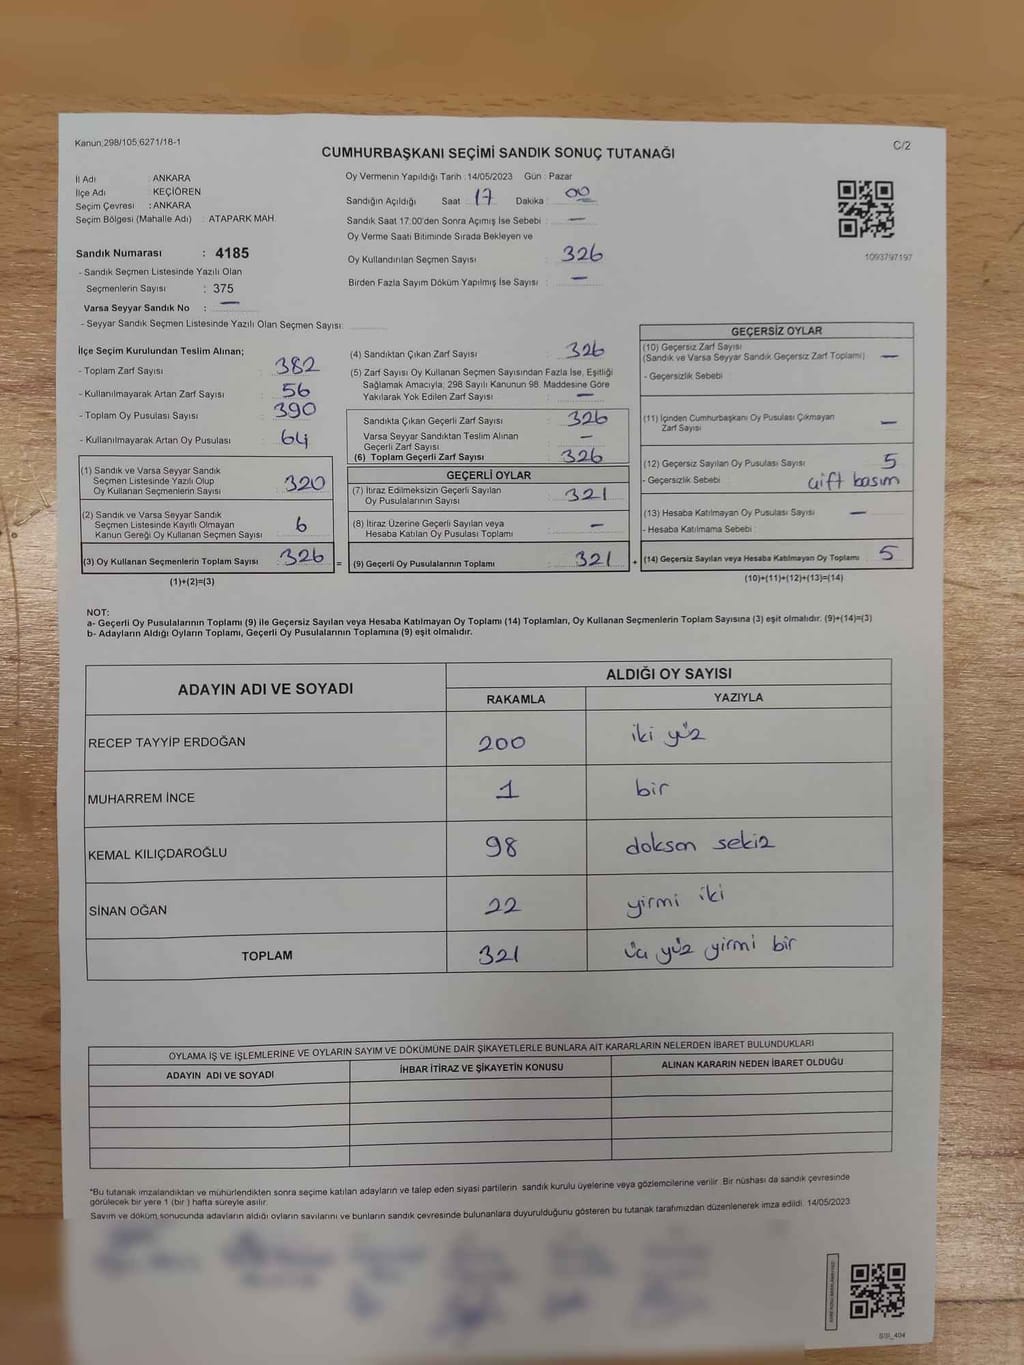 Kanun;298/105;6271/18-1
C/2
CUMHURBAŞKANI SEÇİMİ SANDIK SONUÇ TUTANAĞI
İl Adı : ANKARA
İlçe Adı : KEÇİÖREN
Seçim Çevresi : ANKARA
Seçim Bölgesi (Mahalle Adı) : ATAPARK MAH.
Sandık Numarası : 4185
- Sandık Seçmen Listesinde Yazılı Olan
Seçmenlerin Sayısı : 375
Varsa Seyyar Sandık No : —
- Seyyar Sandık Seçmen Listesinde Yazılı Olan Seçmen Sayısı:
Oy Vermenin Yapıldığı Tarih : 14/05/2023 Gün : Pazar
Sandığın Açıldığı Saat 17 Dakika : 00
Sandık Saat 17:00'den Sonra Açımış İse Sebebi : —
Oy Verme Saati Bitiminde Sırada Bekleyen ve
Oy Kullandırılan Seçmen Sayısı : 326
Birden Fazla Sayım Döküm Yapılmış İse Sayısı : —
1093797197
İlçe Seçim Kurulundan Teslim Alınan;
- Toplam Zarf Sayısı : 382
- Kullanılmayarak Artan Zarf Sayısı : 56
- Toplam Oy Pusulası Sayısı : 390
- Kullanılmayarak Artan Oy Pusulası : 64
(1) Sandık ve Varsa Seyyar Sandık
Seçmen Listesinde Yazılı Olup
Oy Kullanan Seçmenlerin Sayısı : 320
(2) Sandık ve Varsa Seyyar Sandık
Seçmen Listesinde Kayıtlı Olmayan
Kanun Gereği Oy Kullanan Seçmen Sayısı : 6
(3) Oy Kullanan Seçmenlerin Toplam Sayısı : 326 =
(1)+(2)=(3)
(4) Sandıktan Çıkan Zarf Sayısı : 326
(5) Zarf Sayısı Oy Kullanan Seçmen Sayısından Fazla İse, Eşitliği
Sağlamak Amacıyla; 298 Sayılı Kanunun 98. Maddesine Göre
Yakılarak Yok Edilen Zarf Sayısı : —
Sandıkta Çıkan Geçerli Zarf Sayısı : 326
Varsa Seyyar Sandıktan Teslim Alınan
Geçerli Zarf Sayısı : —
(6) Toplam Geçerli Zarf Sayısı : 326
GEÇERLİ OYLAR
(7) İtiraz Edilmeksizin Geçerli Sayılan
Oy Pusulalarının Sayısı : 321
(8) İtiraz Üzerine Geçerli Sayılan veya
Hesaba Katılan Oy Pusulası Toplamı : —
(9) Geçerli Oy Pusulalarının Toplamı : 321 +
GEÇERSİZ OYLAR
(10) Geçersiz Zarf Sayısı
(Sandık ve Varsa Seyyar Sandık Geçersiz Zarf Toplamı) —
- Geçersizlik Sebebi :
(11) İçinden Cumhurbaşkanı Oy Pusulası Çıkmayan
Zarf Sayısı —
(12) Geçersiz Sayılan Oy Pusulası Sayısı : 5
- Geçersizlik Sebebi : çift basım
(13) Hesaba Katılmayan Oy Pusulası Sayısı : —
- Hesaba Katılmama Sebebi :
(14) Geçersiz Sayılan veya Hesaba Katılmayan Oy Toplamı : 5
(10)+(11)+(12)+(13)=(14)
NOT:
a- Geçerli Oy Pusulalarının Toplamı (9) ile Geçersiz Sayılan veya Hesaba Katılmayan Oy Toplamı (14) Toplamları, Oy Kullanan Seçmenlerin Toplam Sayısına (3) eşit olmalıdır. (9)+(14)=(3)
b- Adayların Aldığı Oyların Toplamı, Geçerli Oy Pusulalarının Toplamına (9) eşit olmalıdır.
ADAYIN ADI VE SOYADI
ALDIĞI OY SAYISI
RAKAMLA YAZIYLA
RECEP TAYYİP ERDOĞAN 200 iki yüz
MUHARREM İNCE 1 bir
KEMAL KILIÇDAROĞLU 98 doksan sekiz
SİNAN OĞAN 22 yirmi iki
TOPLAM 321 üç yüz yirmi bir
OYLAMA İŞ VE İŞLEMLERİNE VE OYLARIN SAYIM VE DÖKÜMÜNE DAİR ŞİKAYETLERLE BUNLARA AİT KARARLARIN NELERDEN İBARET BULUNDUKLARI
ADAYIN ADI VE SOYADI İHBAR İTİRAZ VE ŞİKAYETİN KONUSU ALINAN KARARIN NEDEN İBARET OLDUĞU
*Bu tutanak imzalandıktan ve mühürlendikten sonra seçime katılan adayların ve talep eden siyasi partilerin sandık kurulu üyelerine veya gözlemcilerine verilir. Bir nüshası da sandık çevresinde
görülecek bir yere 1 (bir ) hafta süreyle asılır.
Sayım ve döküm sonucunda adayların aldığı oyların sayılarını ve bunların sandık çevresinde bulunanlara duyurulduğunu gösteren bu tutanak tarafımızdan düzenlenerek imza edildi. 14/05/2023